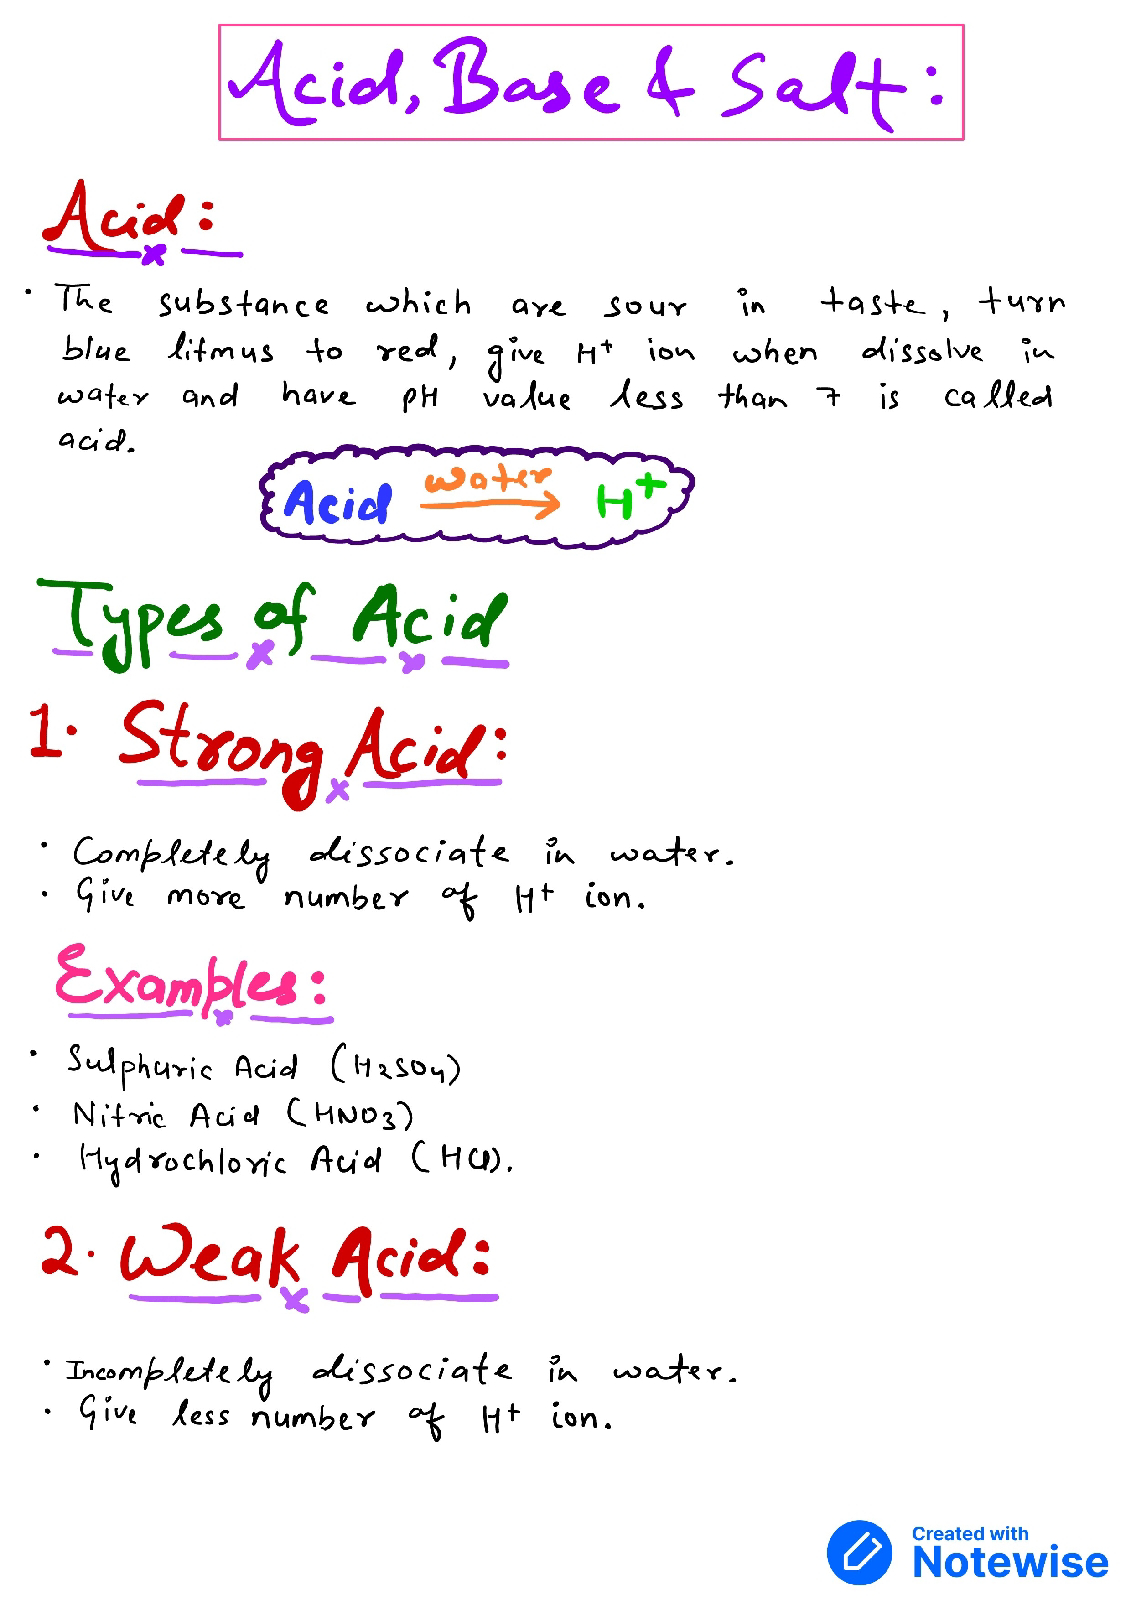 Acid, Base & Salt:
Acid:
• The substance which are sour in taste, turn
blue litmus to red, give H+ ion when dissolve in
water and have pH value less than 7 is called
acid.
Acid water → H+
Types of Acid
1. Strong Acid:
• Completely dissociate in water.
• Give more number of H+ ion.
Examples:
• Sulphuric Acid (H2SO4)
• Nitric Acid (HNO3)
• Hydrochloric Acid (HCl).
2. Weak Acid:
• Incompletely dissociate in water.
• Give less number of H+ ion.
Created with
Notewise